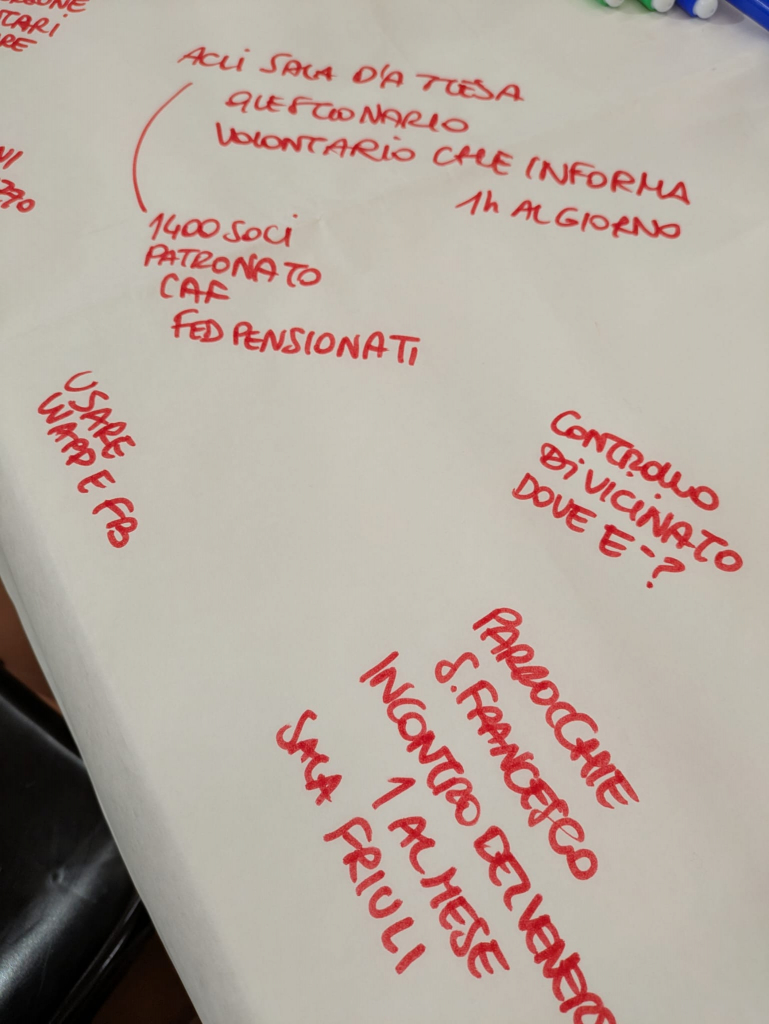 ACLI SALA D'ATTESA
QUESTIONARIO
VOLONTARIO CHE INFORMA
1h AL GIORNO
1400 SOCI
PATRONATO
CAF
FED PENSIONATI
USARE
WAPP E FB
CONTROLLO
DI VICINATO
DOVE E-?
PARROCCHIE
S. FRANCESCO
INCONTRO DEL VENERD
1 AL MESE
SALA FRIULI